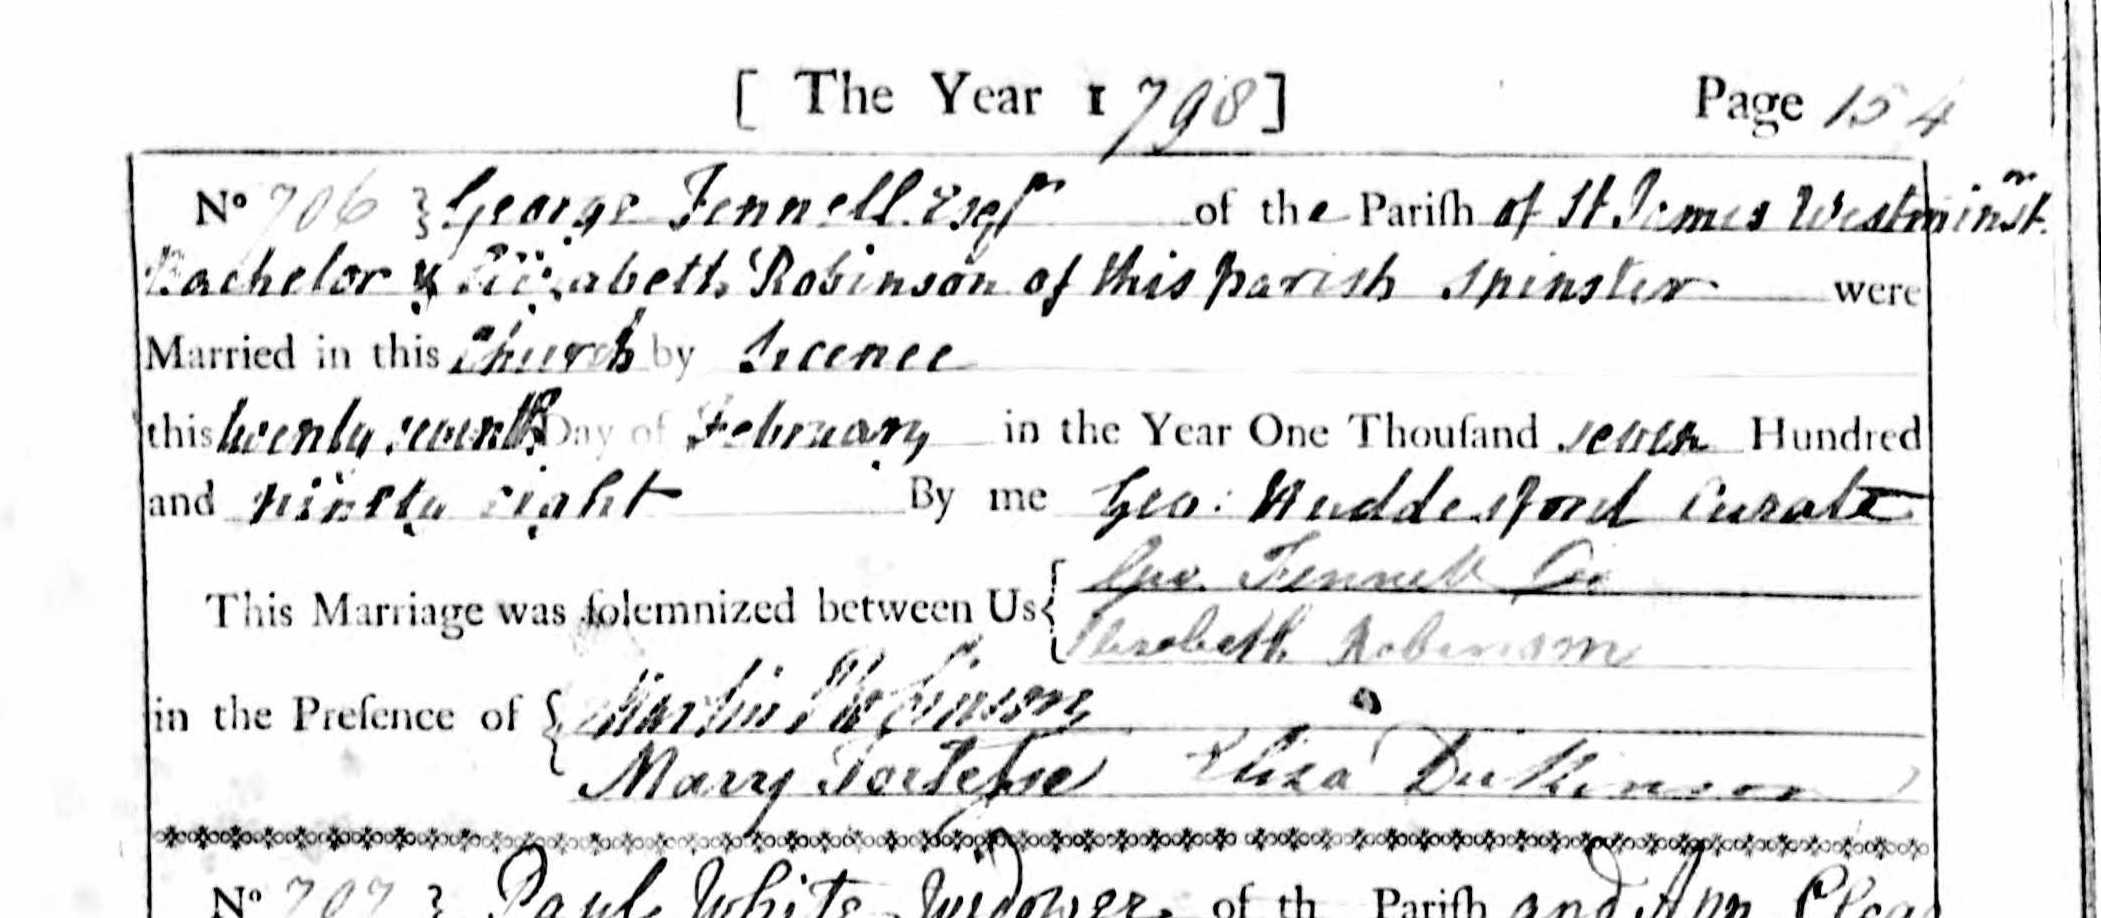 [ The Year 1798]
Page 154
No 706 } George Fennell Esqr of the Pariſh of St James Westminstr.
Bachelor & Elizabeth Robinson of this parish Spinster were
Married in this Church by Licence
this twenty seventh Day of February in the Year One Thouſand seven Hundred
and ninety eight By me Geo: Huddesford Curate
This Marriage was ſolemnized between Us { Geo. Fennell
Elizabeth Robinson
in the Preſence of { Martin Robinson
Mary Eliza Dickinson
No 707 } Paul White Widower of th Pariſh and Ann